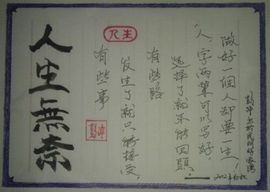 做好一個人却要一生
人字兩筆可以寫好
選擇了就不能回頭
有些路
發生了就只能接受
有些事
人生
人生無奈